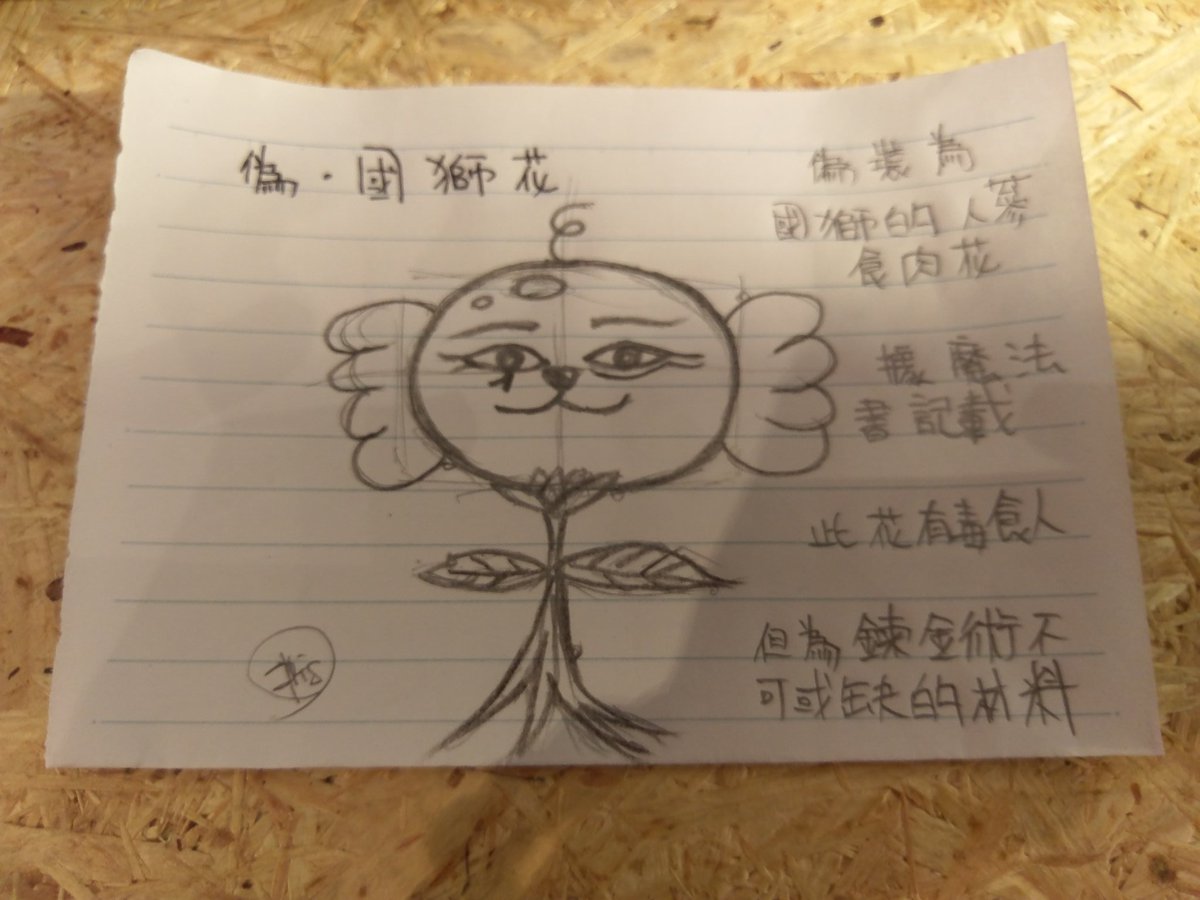 偽・國獅花
偽裝為
國獅的人蔘
食肉花
據魔法
書記載
此花有毒食人
但為鍊金術不
可或缺的材料